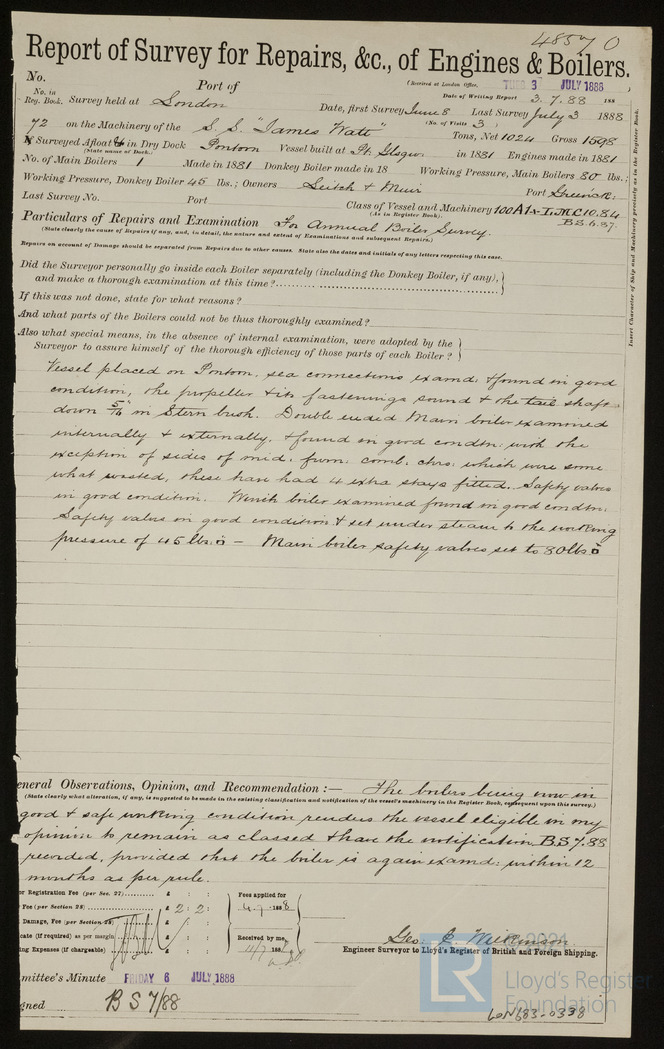 48570
Report of Survey for Repairs, &c., of Engines & Boilers.
(Received at London Office, TUES 3 JULY 1888
No. Port of
Date of Writing Report 3.7.88 188
No. in Reg. Book. Survey held at London Date, first Survey June 8 Last Survey July 3 1888
(No. of Visits 3)
72 on the Machinery of the S.S. "James Watt" Tons, Net 1024 Gross 1598
If Surveyed Afloat or in Dry Dock Pontoon Vessel built at Pt. Glasgow in 1881 Engines made in 1881
(State name of Dock.)
No. of Main Boilers 1 Made in 1881 Donkey Boiler made in 18 Working Pressure, Main Boilers 80 lbs;
Working Pressure, Donkey Boiler 45 lbs.; Owners Leitch & Muir Port Greenock:
Last Survey No. Port Class of Vessel and Machinery 100A1 & L.M.C 10.84
(As in Register Book). B.S.6.87.
Insert Character of Ship and Machinery precisely as in the Register Book.
Particulars of Repairs and Examination For Annual Boiler Survey.
(State clearly the cause of Repairs if any, and, in detail, the nature and extent of Examinations and subsequent Repairs.)
Repairs on account of Damage should be separated from Repairs due to other causes. State also the dates and initials of any letters respecting this case.
Did the Surveyor personally go inside each Boiler separately (including the Donkey Boiler, if any),
and make a thorough examination at this time?
If this was not done, state for what reasons?
And what parts of the Boilers could not be thus thoroughly examined?
Also what special means, in the absence of internal examination, were adopted by the
Surveyor to assure himself of the thorough efficiency of those parts of each Boiler?
Vessel placed on Pontoon, sea connections examd: & found in good
condition, the propeller & its fastenings sound & the tail shaft
down 5/16 in Stern bush. Double ended Main boiler examined
internally & externally, & found in good condtn: with the
exception of sides of mid: furn: comb: chrs: which were some
what wasted, these have had 4 extra stays fitted. Safety valves
in good condition. Winch boiler examined found in good condtn:
Safety valves in good condition & set under steam to the working
pressure of 45 lbs □" — Main boiler safety valves set to 80 lbs □"
eneral Observations, Opinion, and Recommendation :— The boilers being now in
(State clearly what alteration, if any, is suggested to be made in the existing classification and notification of the vessel's machinery in the Register Book, consequent upon this survey.)
good & safe working condition renders the vessel eligible in my
opinion to remain as classed & have the notification B.S 7.88
recorded, provided that the boiler is again examd: within 12
months as per rule.
or Registration Fee (per Sec. 27) £ : : Fees applied for
Fee (per Section 28) £ 2 : 2 : 4.7.1888
Damage, Fee (per Section 28) £ : :
cate (if required) as per margin £ : : Received by me,
ing Expenses (if chargeable) £ : : 11/7 188
Geo: J. Wilkinson
Engineer Surveyor to Lloyd's Register of British and Foreign Shipping.
mmittee's Minute FRIDAY 6 JULY 1888
gned B S 7/88
© 2021
LR
Lloyd's Register
Foundation
LON683-0338